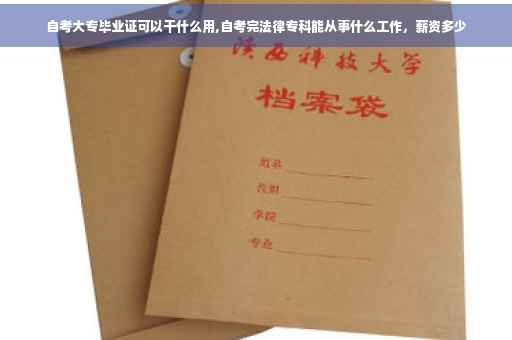 自考大专毕业证可以干什么用,自考完法律专科能从事什么工作，薪资多少
陕西科技大学
档案袋
学院
专业